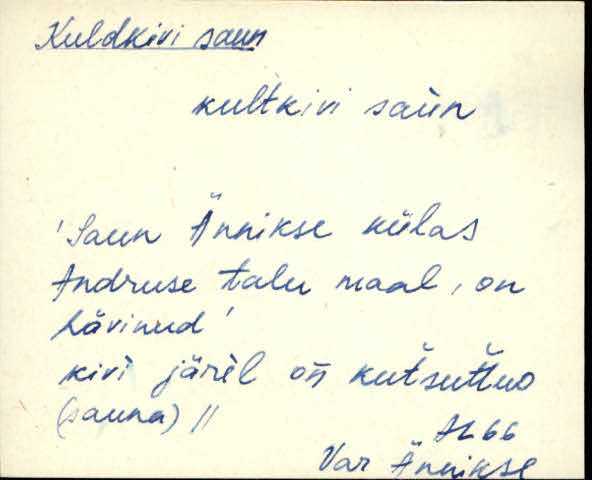 Kuldkivi saun
kultkivi saun
'Saun Ännikse külas
Andruse talu maal, on
hävinud'
kivi järel on kutsuttuo
(sauna) //
AL 66
Var Ännikse